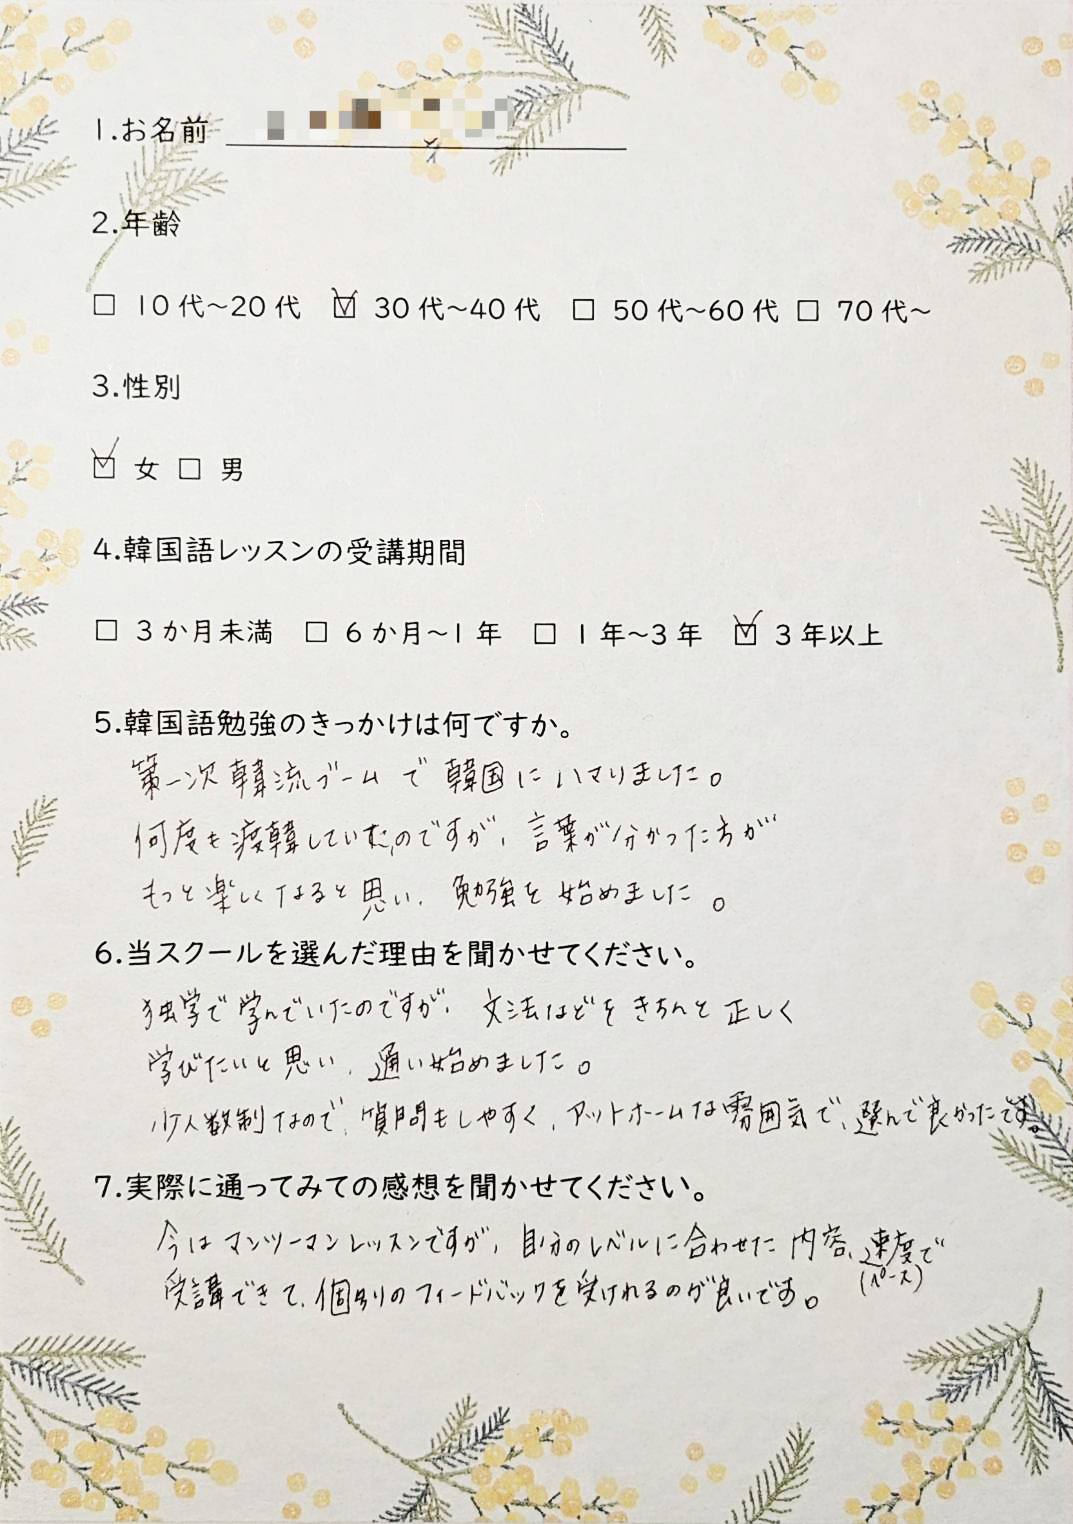 1.お名前
2.年齢
□ 10代～20代 ☑ 30代～40代 □ 50代～60代 □ 70代～
3.性別
☑ 女 □ 男
4.韓国語レッスンの受講期間
□ 3か月未満 □ 6か月～1年 □ 1年～3年 ☑ 3年以上
5.韓国語勉強のきっかけは何ですか。
第一次韓流ブームで韓国にハマりました。
何度も渡韓していたのですが、言葉が分かった方が
もっと楽しくなると思い、勉強を始めました。
6.当スクールを選んだ理由を聞かせてください。
独学で学んでいたのですが、文法などをきちんと正しく
学びたいと思い、通い始めました。
少人数制なので、質問もしやすく、アットホームな雰囲気で、選んで良かったです。
7.実際に通ってみての感想を聞かせてください。
今はマンツーマンレッスンですが、自分のレベルに合わせた内容、速度で
(ペース)
受講できて、個別のフィードバックを受けれるのが良いです。